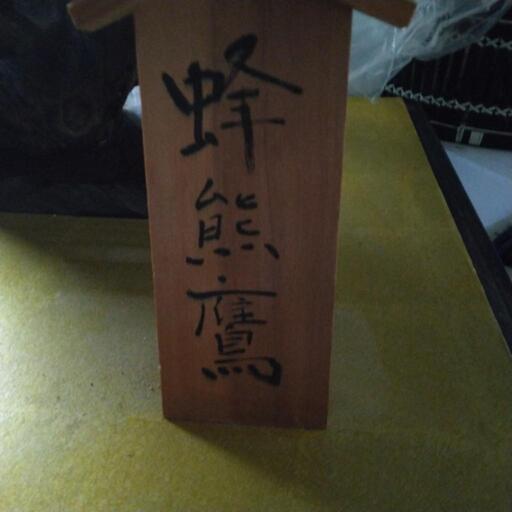 蜂熊鷹